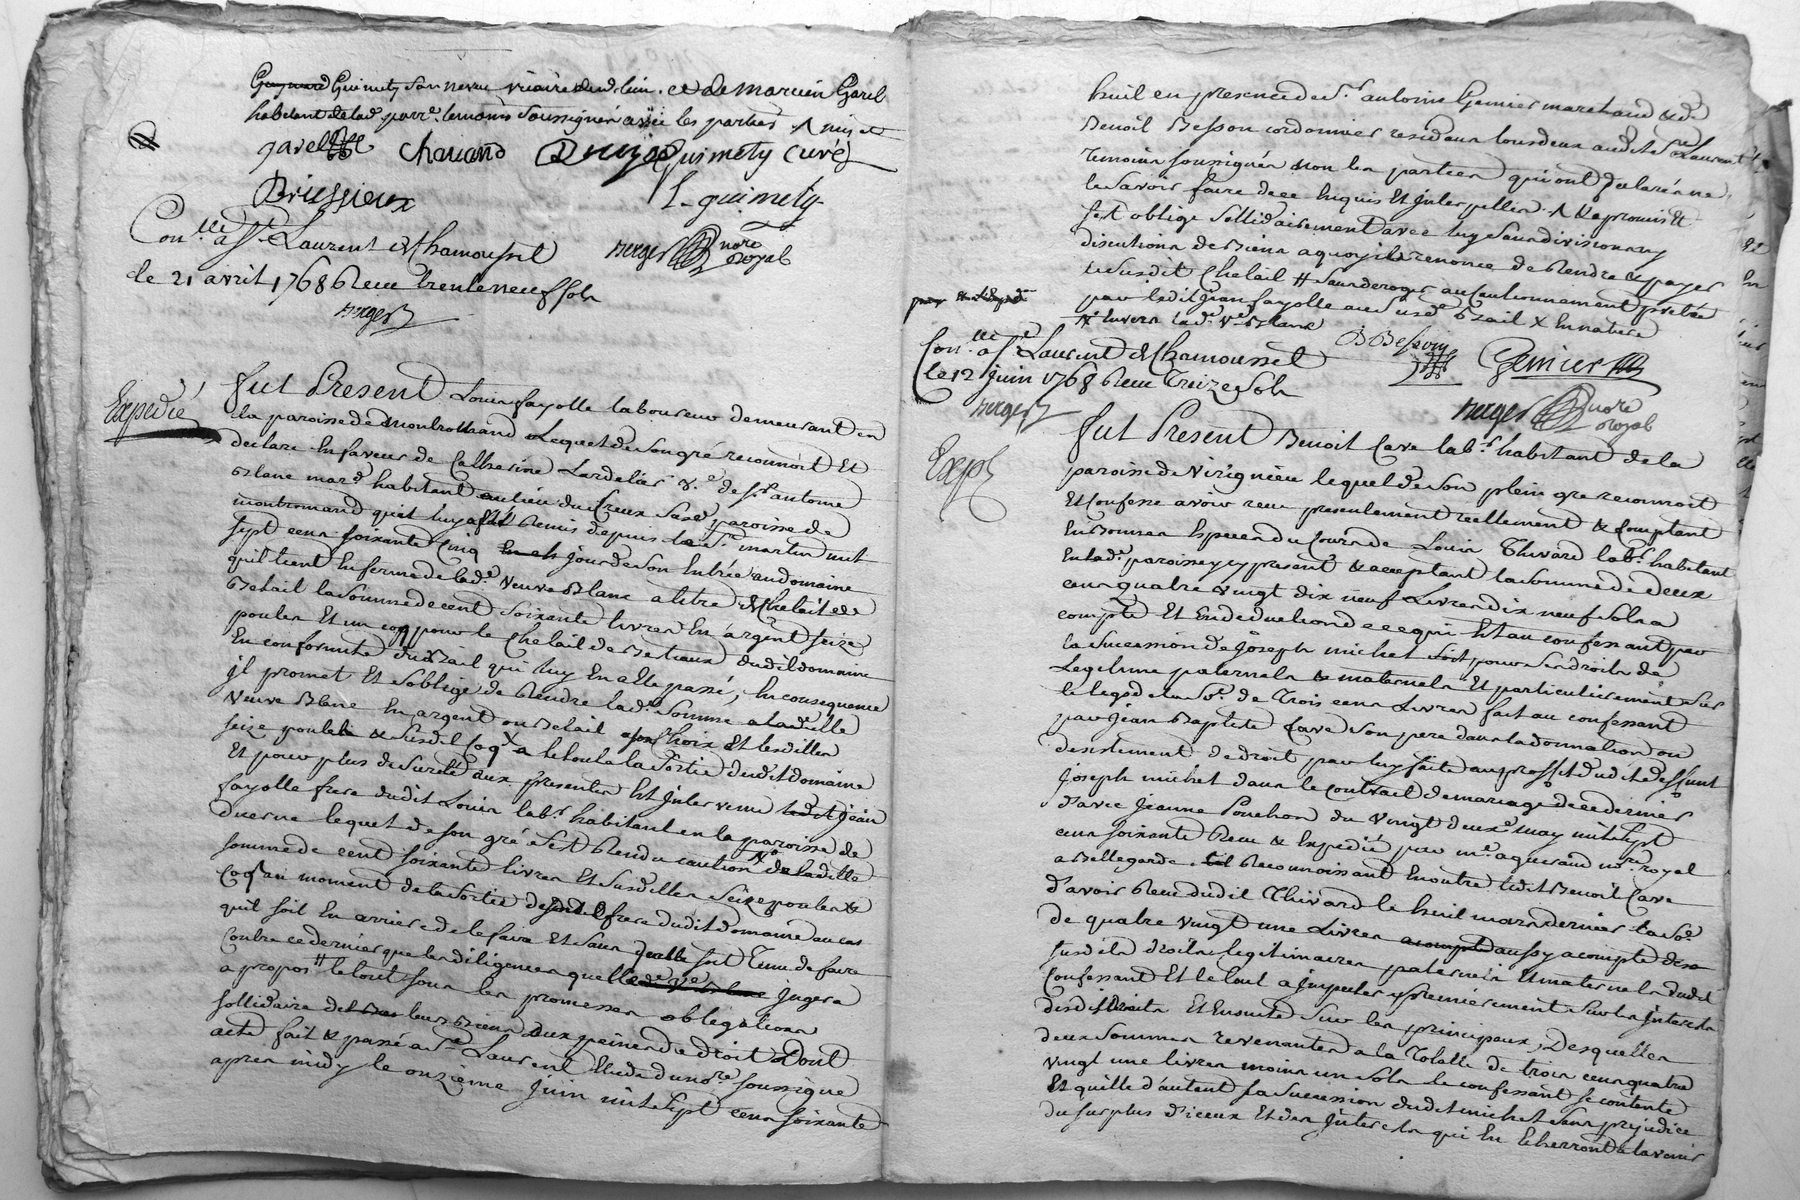 Guimety son neveu vicaire dud. lieu. et de marcien Garel
habitant de lad. parr.e temoins soussignés avec les parties
garel chavand Druge guimety curé
Brussieux L. guimety
Con.lle a St. Laurent de Chamousset Berger nore royal
le 21 avril 1768 Reçu trente neuf sols
Berger
Expedié
fut Present Louis fayolle laboureur demeurant en
la paroisse de montromand Lequel de son gré reconnoit Et
declare En faveur de Catherine Lardelier v.e de Sr. antoine
Blanc mar.d habitant au lieu du Creux paroisse de
montromand qu'il luy a été Remis depuis la St. martin mil
sept cens soixante cinq jour de son Entrée au domaine
qu'il tient En ferme de lad.e veuve Blanc a titre de Chelait de
Betail la somme de cent soixante livres En argent seize
poules Et un coq pour le Chelail de Betiaux dudit domaine
En conformité du Bail qui luy En a été passé, En consequence
jl promet Et s'oblige de Rendre lad. somme a laditte
veuve Blanc En argent ou Betail a son choix Et lesdittes
seize poules & susdit Coq a la sortie dudit domaine
Et pour plus de sureté aux presentes Est jntervenu jean
fayolle frere dudit Louis lab.r habitant en la paroisse de
duerne lequel de son gré s'est Rendu caution de laditte
somme de cent soixante livres Et susdittes seize poules &
Coq au moment de la sortie de sondit frere dudit domaine au cas
qu'il soit En arriere de le faire Et sans qu'elle soit Tenue de faire
Contre ce dernier que les diligences quelle jugera
a propos le tout sous les promesses obligations
sollidaire de leurs Biens aux peines de droit Dont
acte fait & passé a St. Laurent Etude du nore. soussigné
apres midy le onzieme juin mil sept cens soixante
huit en presence de Sr. antoine Genier marchand & de
Benoit Besson cordonnier residans tous deux audit St. Laurent
temoins soussignés non les parties qui ont declaré ne
le savoir faire de ce Enquis Et jnterpellés. & a promis Et
s'est obligé sollidairement avec luy sans division ny
discution de Biens a quoy jls renonce de Rendre & payer
susdit Chelail # sans deroger au cautionnement pretée
par ledit jean fayolle au susd. Bail x En nature
Envers lad.e v.e Blanc
B Besson
Genier
Con.lle a St. Laurent de Chamousset
le 12 juin 1768 Reçu Treize sols
Berger
Berger nore royal
Exp.
fut Present Benoit Cave lab.r habitant de la
paroisse de virignieu lequel de son plein gré reconnoit
Et Confesse avoir reçu presentement reellement & comptant
En Bonnes Especes du Cours de Louis Thivard lab.r habitant
En lad.e paroisse y present & acceptant la somme de deux
cens quatre vingt dix neuf Livres dix neuf sols a
compte Et En deduction de ce qui Est au confessant par
la sucession de joseph michet soit pour ses droits de
Legitime paternels & maternels Et particulierement sur
le legs de la so.e de Trois cens Livres fait au confessant
par jean Baptiste Cave son pere dans la donnation ou
desistement de droit par luy faite au proffit dudit deffunt
joseph michet dans le contrait de mariage de ce dernier
d'avec jeanne Ponchon du vingt deux may mil sept
cens soixante Reçu & Expedié par m.e aguiraud nore. royal
a Bellegarde. Reconnoissant En outre ledit Benoit Cave
d'avoir Reçu dudit Thivard le huit mars dernier la so.e
de quatre vingt une Livres aussy a compte des
susdits droits legitimaires paternels Et maternels dudit
Confessant Et le tout a jmputer premierement sur les jnterets
desdits droits Et Ensuite sur les principaux, Desquelles
deux sommes revenantes a la Totalle de trois cens quatre
vingt une livres moins un sols le confessant se contente
Et quitte d'autent la sucession dudit michet sans prejudice
du surplus d'iceux Et des jnterets qui En Echerront a l'avenir